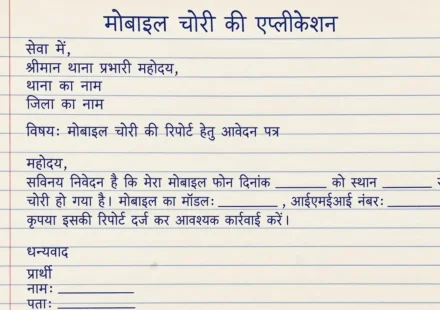 मोबाइल चोरी की एप्लीकेशन
सेवा में,
श्रीमान थाना प्रभारी महोदय,
थाना का नाम
जिला का नाम
विषय: मोबाइल चोरी की रिपोर्ट हेतु आवेदन पत्र
महोदय,
सविनय निवेदन है कि मेरा मोबाइल फोन दिनांक ________ को स्थान ________
चोरी हो गया है। मोबाइल का मॉडल: __________ , आईएमईआई नंबर: ________
कृपया इसकी रिपोर्ट दर्ज कर आवश्यक कार्रवाई करें।
धन्यवाद
प्रार्थी
नाम: ____________
पता: ____________